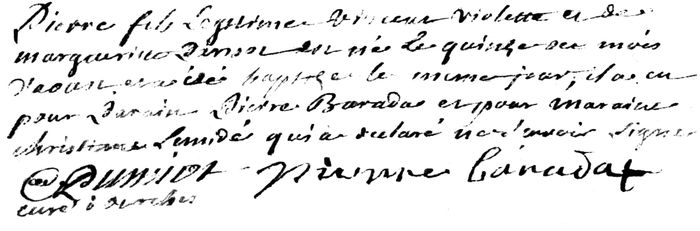 Pierre fils Legitime Vincent Violette et de
marguerite est né Le quinze du mois
d'aoust et a été baptize le meme jour, il a eu
pour Parain Pierre Barada et pour maraine
christinne qui a declaré ne savoir signer
Pierre barada
curé